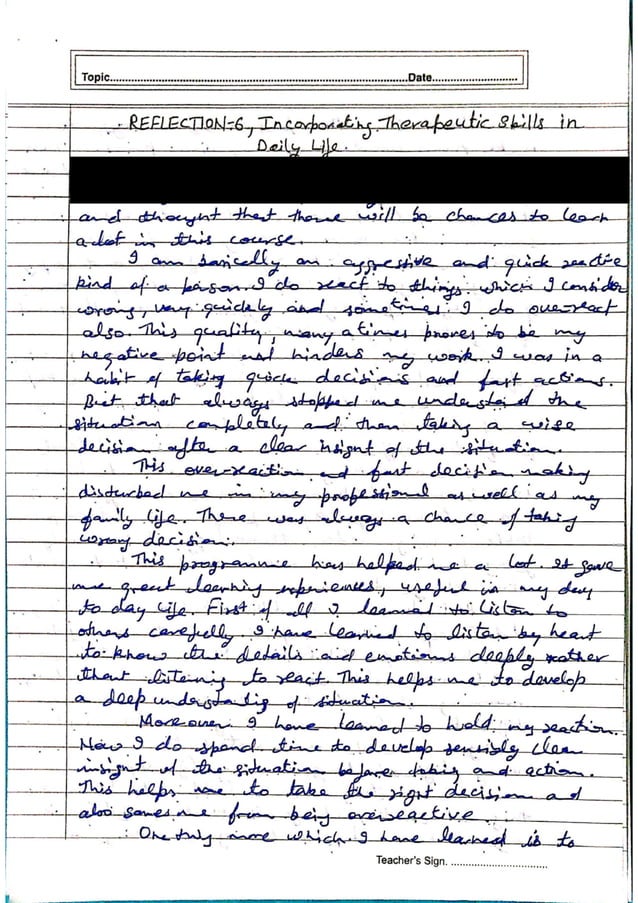 Topic.....................................................Date.....................
REFLECTION-6, Incorporating Therapeutic Skills in
Daily Life.
and thought that there will be chances to learn
a lot in this course.
I am basically an aggressive and quick reactive
kind of a person. I do react to things which I consider
wrong, very quickly and sometimes I do overreact
also. This quality, many a times proves to be my
negative point and hinders my work. I was in a
habit of taking quick decisions and fast actions.
But that always stopped me understand the
situation completely and then taking a wise
decision after a clear insight of the situation.
This over-reaction and fast decision making
disturbed me in my professional as well as my
family life. There was always a chance of taking
wrong decision.
This programme has helped me a lot. It gave
me great learning experiences, useful in my day
to day life. First of all I learned to listen to
others carefully. I have learned to listen by heart
to know the details and emotions deeply rather
than listening to react. This helps me to develop
a deep understanding of situation.
Moreover I have learned to hold my reaction.
Now I do spend time to develop sensibly clear
insight of the situation before taking and action.
This helps me to take the right decision and
also saves me from being overreactive.
One more which I have learned is to
Teacher's Sign. ................................